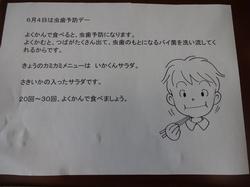 ６月４日は虫歯予防デー
よくかんで食べると、虫歯予防になります。
よくかむと、つばがたくさん出て、虫歯のもとになるバイ菌を洗い流してく
れるからです。
きょうのカミカミメニューは いかくんサラダ。
さきいかの入ったサラダです。
２０回～３０回、よくかんで食べましょう。